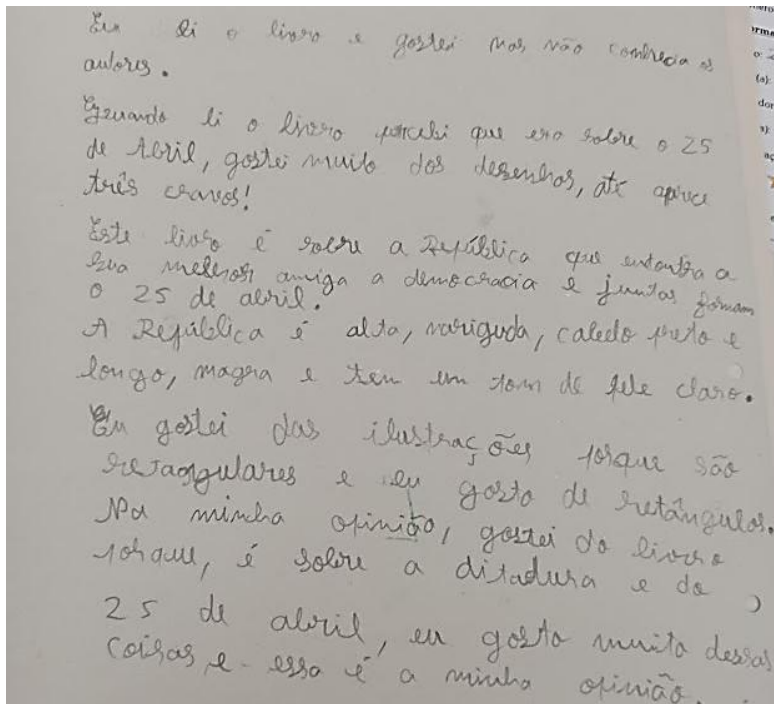 Eu li o livro e gostei mas não conhecia os
autores.
quando li o livro percebi que era sobre o 25
de Abril, gostei muito dos desenhos, até aparece
três cravos!
Este livro é sobre a República que encontra a
sua melhor amiga a democracia e juntas formam
o 25 de abril.
A República é alta, nariguda, cabelo preto e
longo, magra e tem um tom de pele claro.
Eu gostei das ilustrações porque são
retangulares e eu gosto de retângulos.
Na minha opinião, gostei do livro
porque, é sobre a ditadura e do
25 de abril, eu gosto muito dessas
coisas e essa é a minha opinião.